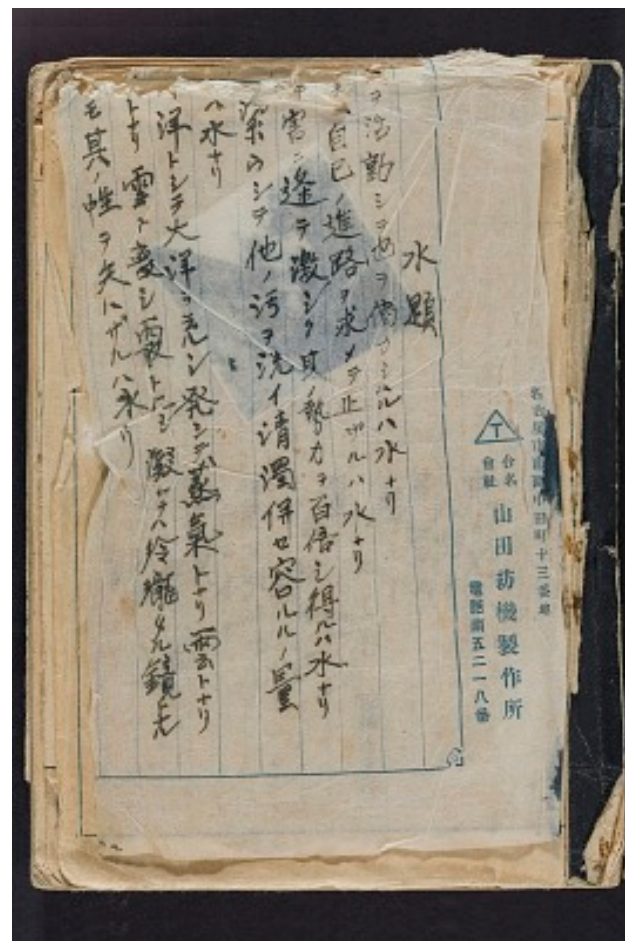 名古屋市南區中田町十三番地
合名
會社
山田紡機製作所
電話南五二一八番
水題
ヲ活動シテ他ヲ働カシムルハ水ナリ
自己ノ進路ヲ求メテ止マザルハ水ナリ
害ニ逢テ激シク其ノ勢力ヲ百倍シ得ルハ水ナリ
潔ウシテ他ノ汚ヲ洗イ清濁併セ容ルルノ量
ハ水ナリ
洋トシテ大洋ヲ充シ発シテ蒸氣トナリ雲トナリ
トナリ雪ト変シ霰ト化シ凝シテハ玲瓏タル鏡トナル
モ其ノ性ヲ失ハザルハ水リ